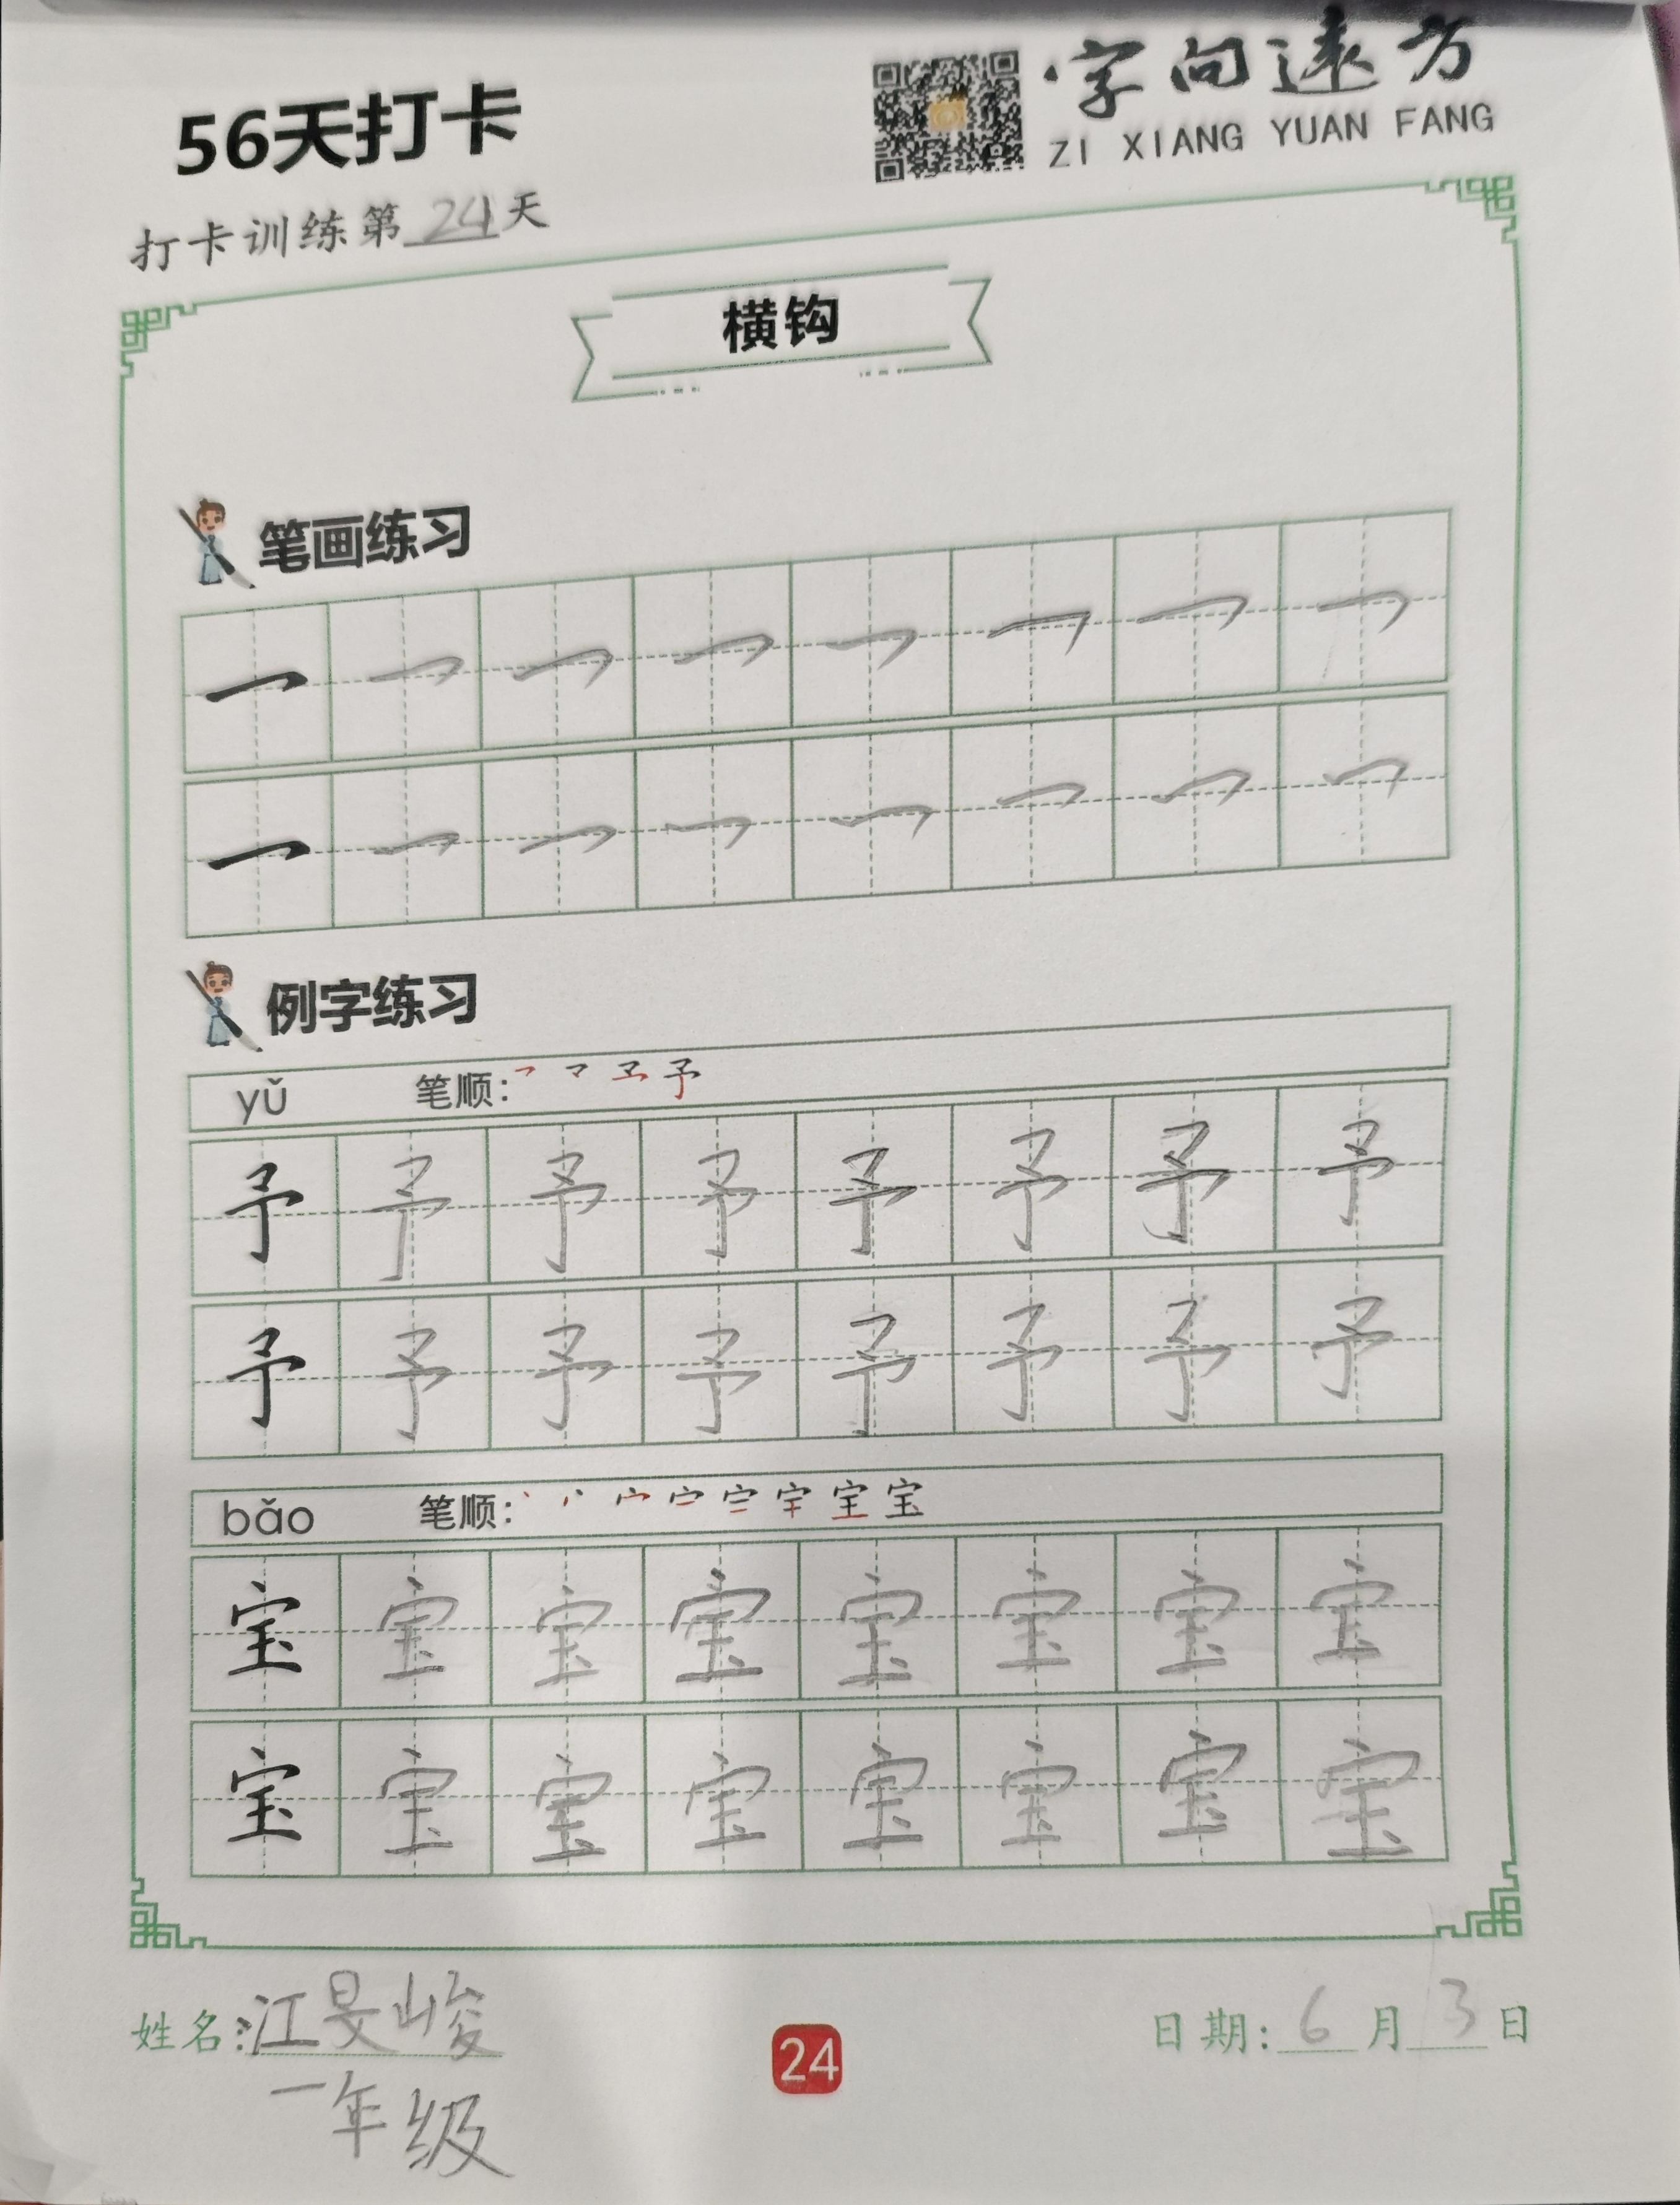 56天打卡
字向远方
ZI XIANG YUAN FANG
打卡训练第24天
横钩
笔画练习
㇖ ㇖ ㇖ ㇖ ㇖ ㇖ ㇖ ㇖
㇖ ㇖ ㇖ ㇖ ㇖ ㇖ ㇖ ㇖
例字练习
yǔ 笔顺:
予 予 予 予 予 予 予 予
予 予 予 予 予 予 予 予
bǎo 笔顺:
宝 宝 宝 宝 宝 宝 宝 宝
宝 宝 宝 宝 宝 宝 宝 宝
姓名:江旻峻
一年级
24
日期:6月3日